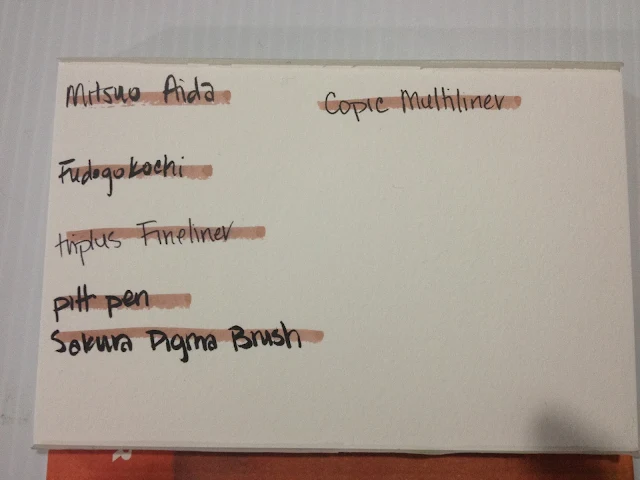 Mitsuo Aida
Copic Multiliner
Fudogokochi
triplus Fineliner
pitt pen
Sakura Pigma Brush
R